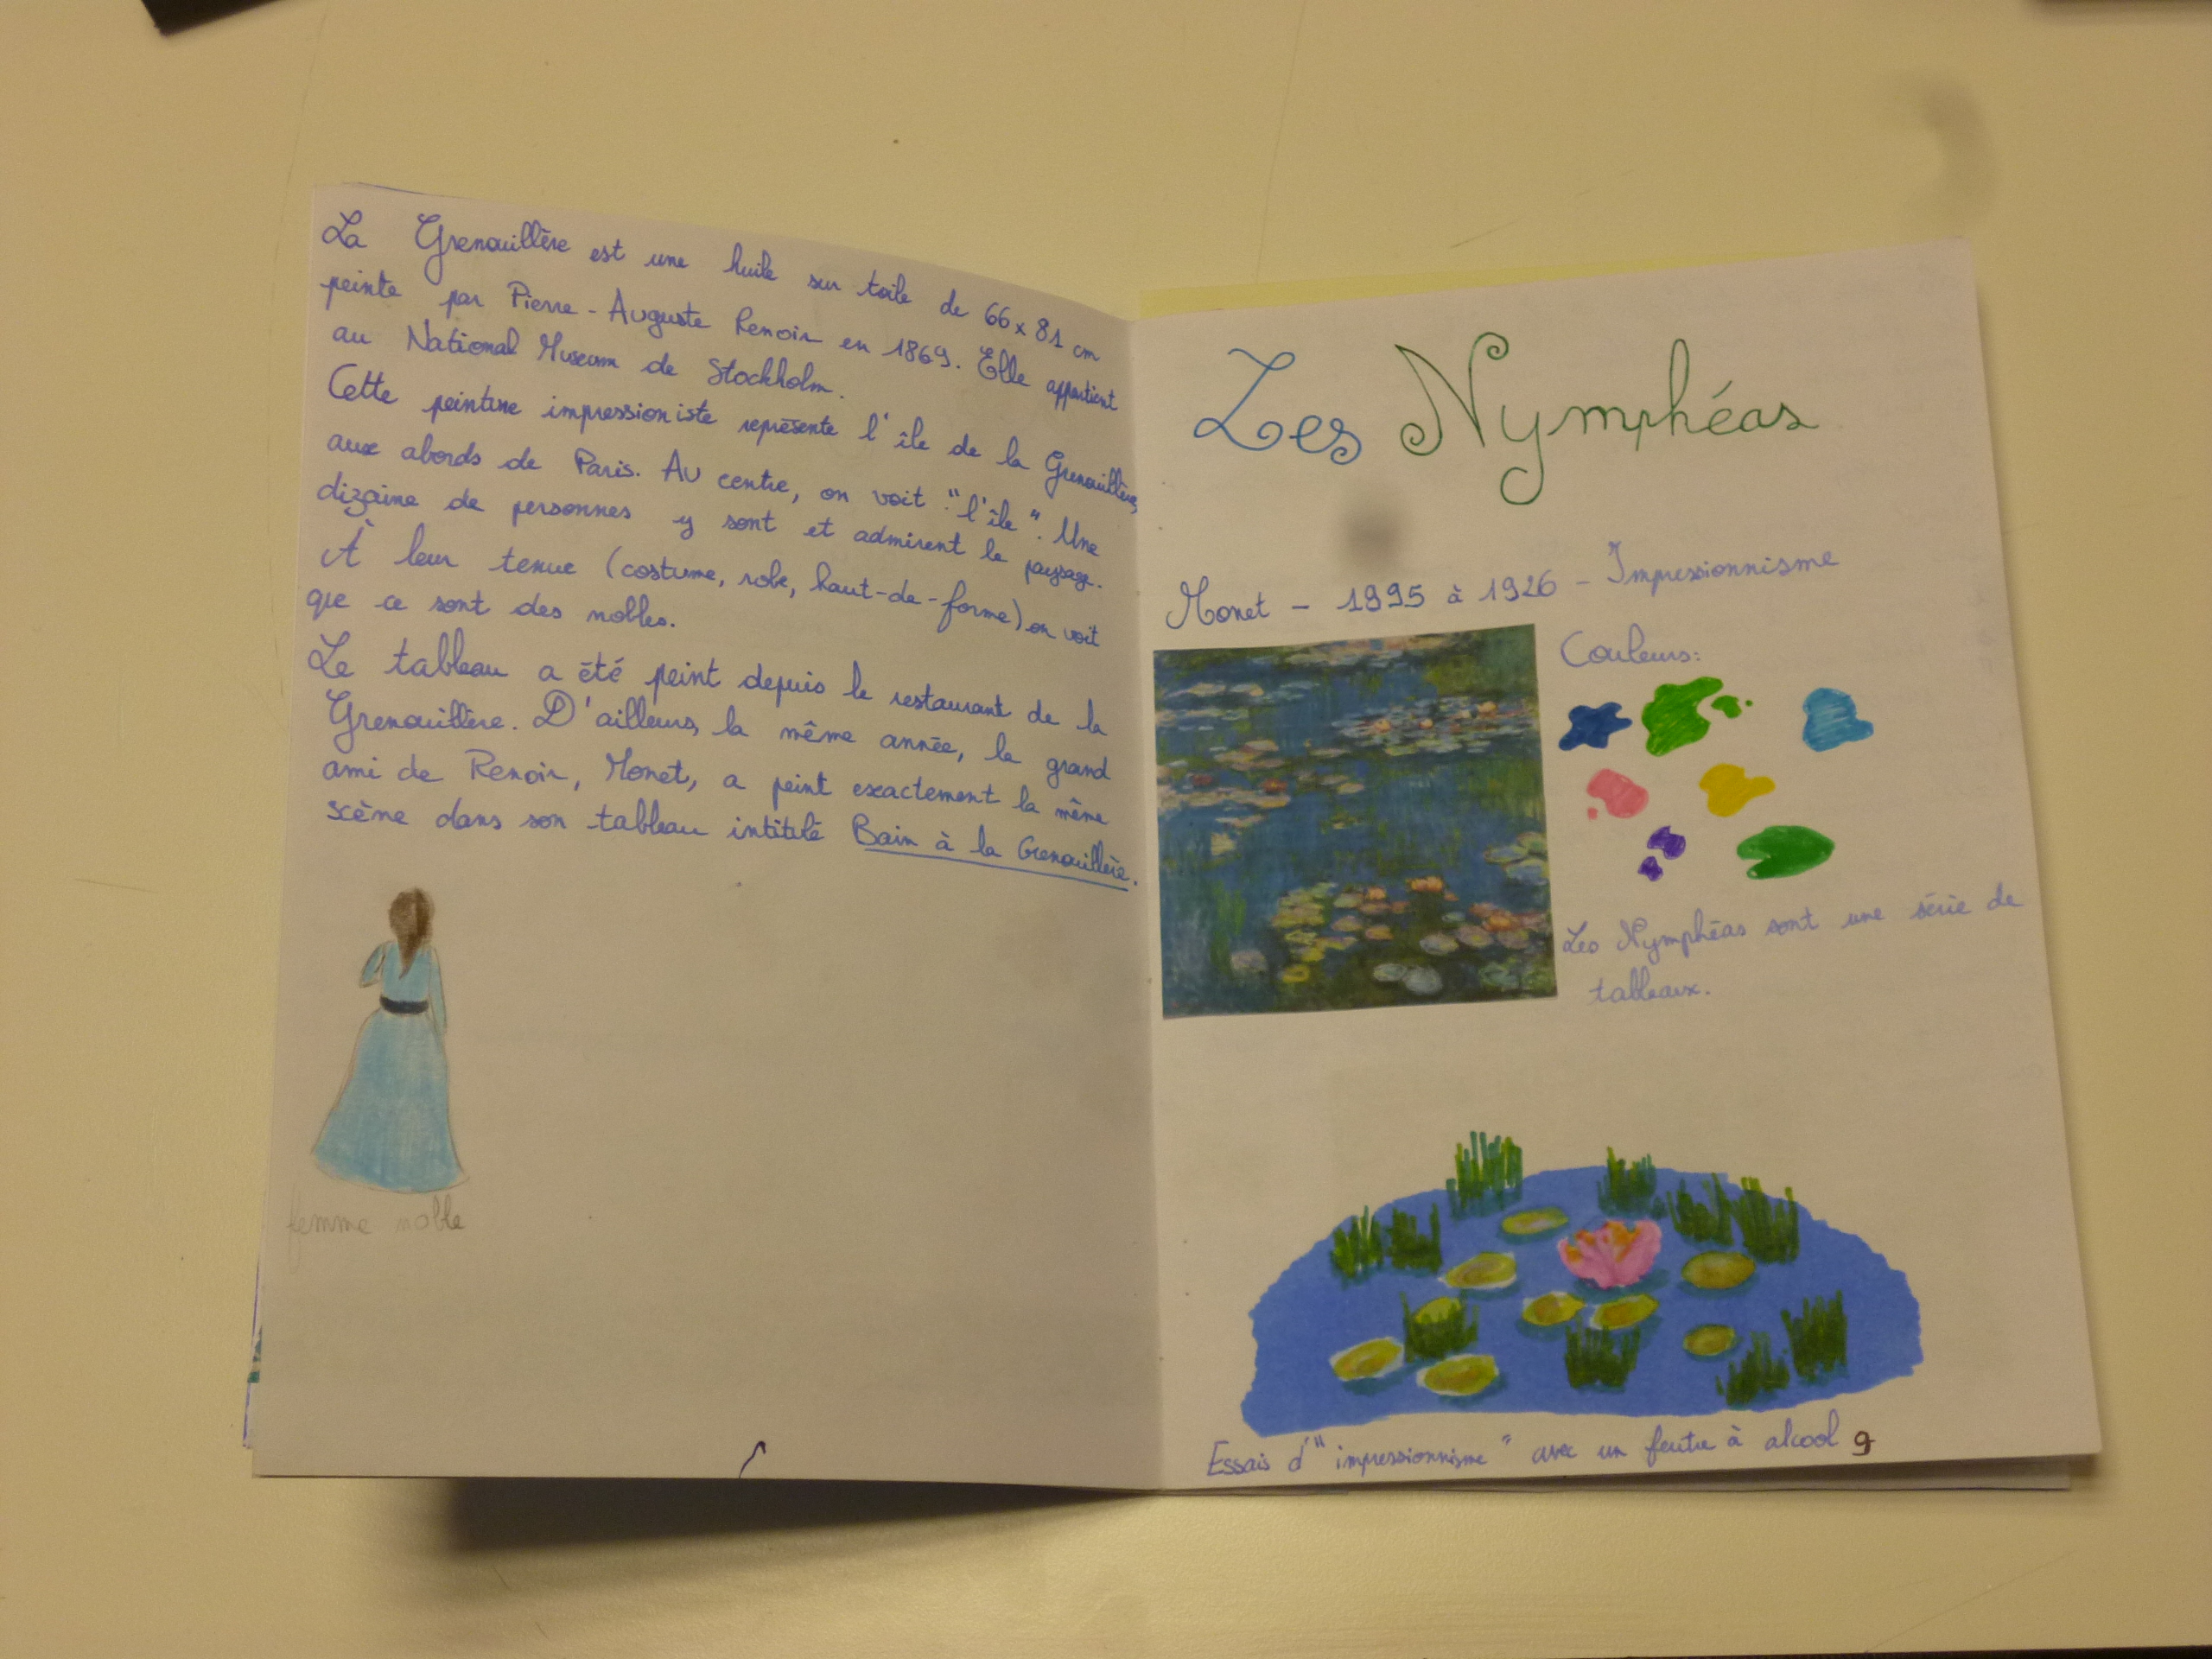 La Grenouillère est une huile sur toile de 66 x 81 cm
peinte par Pierre-Auguste Renoir en 1869. Elle appartient
au National Museum de Stockholm.
Cette peinture impressioniste représente l'île de la Grenouillère,
aux abords de Paris. Au centre, on voit "l'île". Une
dizaine de personnes y sont et admirent le paysage.
À leur tenue (costume, robe, haut-de-forme) on voit
que ce sont des nobles.
Le tableau a été peint depuis le restaurant de la
Grenouillère. D'ailleurs, la même année, le grand
ami de Renoir, Monet, a peint exactement la même
scène dans son tableau intitulé Bain à la Grenouillère.
femme noble
Les Nymphéas
Monet - 1995 à 1926 - Impressionnisme
Couleurs:
Les Nymphéas sont une série de
tableaux.
Essais d'"impressionnisme" avec un feutre à alcool 9